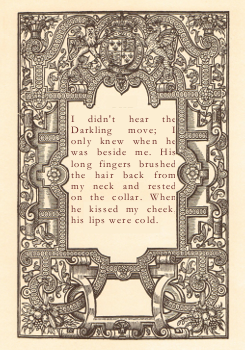 I didn't hear the
Darkling move; I
only knew when he
was beside me. His
long fingers brushed
the hair back from
my neck and rested
on the collar. When
he kissed my cheek,
his lips were cold.